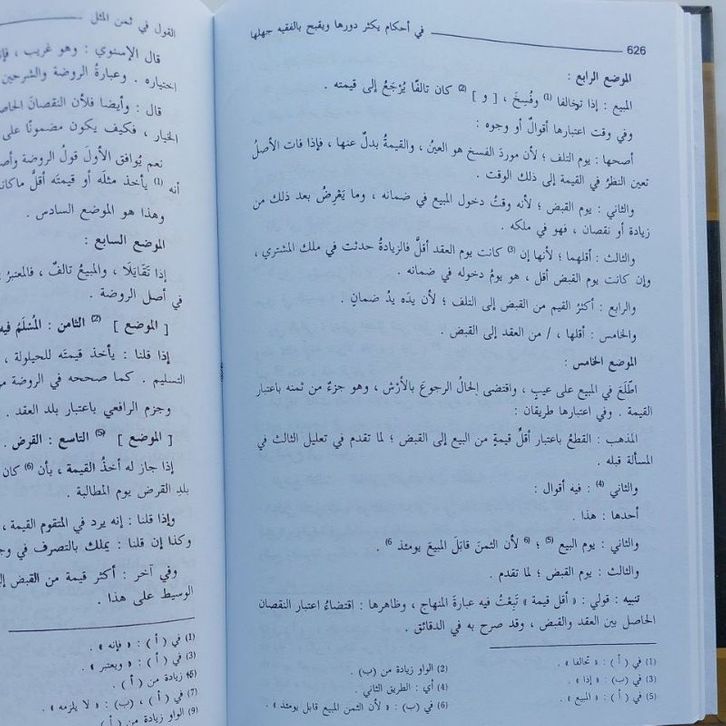 626
في أحكام يكثر دورها ويقبح بالفقيه جهلها
الموضع الرابع :
المبيع : إذا تخالفا (1) وفُسِخَ ، [ و ] (2) كان تالفًا يُرْجَعُ إلى قيمته .
وفي وقت اعتبارها أقوالٌ أو وجوه :
أصحها : يوم التلف ؛ لأن موردَ الفسخ هو العينُ ، والقيمةُ بدلٌ عنها ، فإذا فات الأصلُ
تعين النظرُ في القيمة إلى ذلك الوقت .
والثاني : يوم القبض ؛ لأنه وقتُ دخول المبيع في ضمانه ، وما يَعْرِضُ بعد ذلك من
زيادة أو نقصان ، فهو في ملكه .
والثالث : أقلهما ؛ لأنها إن (3) كانت يوم العقد أقلَّ فالزيادةُ حدثت في ملك المشتري ،
وإن كانت يوم القبض أقل ، هو يومُ دخوله في ضمانه .
والرابع : أكثرُ القيم من القبض إلى التلف ؛ لأن يدَه يدُ ضمانٍ .
والخامس : أقلها ، / من العقد إلى القبض .
الموضع الخامس :
اطّلَعَ في المبيع على عيبٍ ، واقتضى الحالُ الرجوعَ بالأرْش ، وهو جزءٌ من ثمنه باعتبار
القيمة . وفي اعتبارها طريقان :
المذهب : القطعُ باعتبار أقلِّ قيمةٍ من البيع إلى القبض ؛ لما تقدم في تعليل الثالث في
المسألة قبله .
والثاني (4) : فيه أقوال :
أحدها : هذا .
والثاني : يوم البيع (5) ؛ (6) لأن الثمنَ قابلَ المبيعَ يومئذ 6) .
والثالث : يوم القبض ؛ لما تقدم .
تنبيه : قولي : « أقل قيمة » تَبِعْتُ فيه عبارةَ المنهاج ، وظاهرها : اقتضاءُ اعتبار النقصان
الحاصل بين العقد والقبض ، وقد صرح به في الدقائق .
(1) في ( أ ) : « تخالفا » .
(2) الواو زيادة من (ب) .
(3) في (ب) : « إذا » .
(4) أي : الطريق الثاني .
(5) في ( أ ) : « المبيع » .
(6) في (ب) : « لأن الثمن المبيع قابل يومئذ » .
القول في ثمن المثل
قال الإسنوي : وهو غريب ،
اختياره . وعبارةُ الروضة والشرحين
قال : وأيضا فلأن النقصانَ
الخيار ، فكيف يكون مضمونًا على
نعم يُوافق الأولَ قولُ الروضة
أنه (1) يأخذ مثلَه أو قيمتَه أقلَّ
وهذا هو الموضع السادس .
الموضع السابع :
إذا تَقَايَلَا ، والمبيعُ تالفٌ ، فالمعتبرُ
في أصل الروضة .
[ الموضع ] (2) الثامن : المُسْلَمُ
إذا قلنا : يأخذ قيمتَه للحيلولة ،
التسليم . كما صححه في الروضة
وجزم الرافعي باعتبار بلد العقد .
[ الموضع ] (5) التاسع : القرض .
إذا جاز له أخذُ القيمة ، بأن (6) كان
بلدِ القرض يوم المطالبة .
وإذا قلنا : إنه يرد في المتقوم القيمة ،
وكذا إن قلنا : يملك بالتصرف في
وفي آخر : أكثر قيمة من القبض
الوسيط على هذا .
(1) في ( أ ) : « فإنه » .
(3) في ( أ ) : « ويعتبر » .
زيادة من ( أ ) .
(7) في ( أ ) ، (ب) : « لا يلزمه » .
(9) الواو زيادة من ( أ ) .